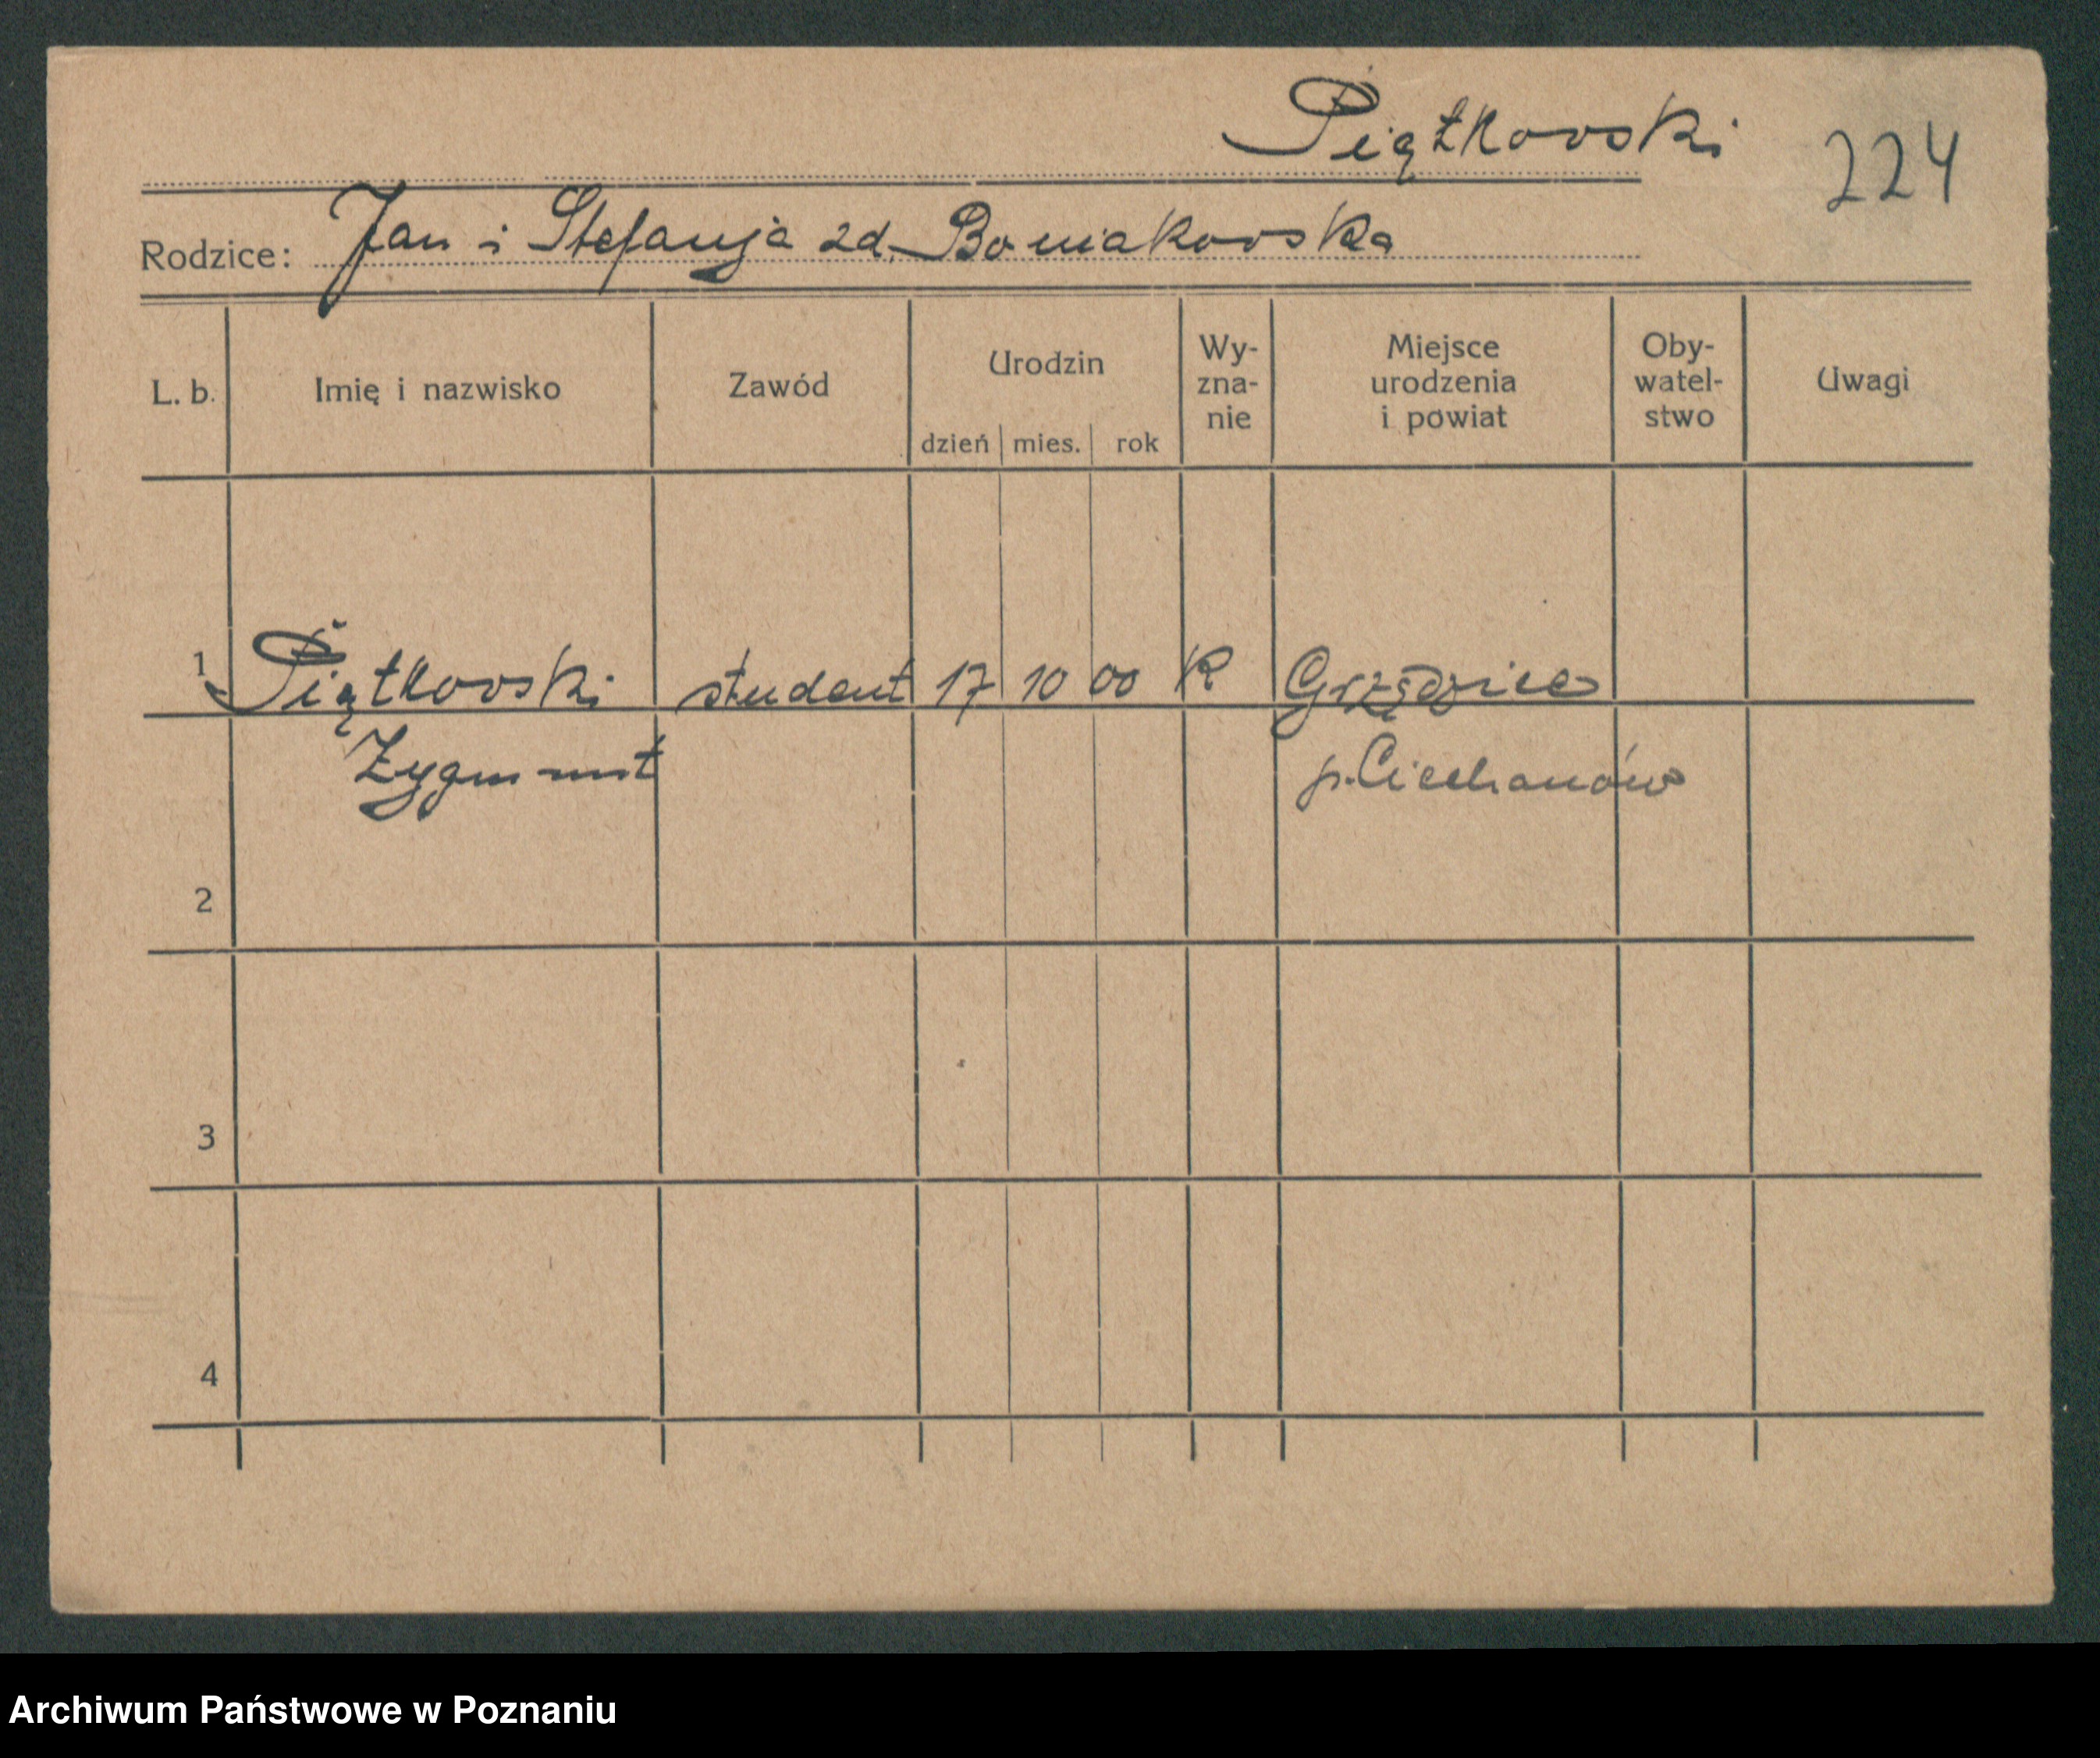 Piątkowski 224
Rodzice: Jan i Stefanja zd. Boniakowska
L. b. Imię i nazwisko Zawód Urodzin dzień mies. rok Wy-zna-nie Miejsce urodzenia i powiat Oby-watel-stwo Uwagi
1 Piątkowski student 17 10 00 K
Zygmunt p. Ciechanów
2
3
4
Archiwum Państwowe w Poznaniu